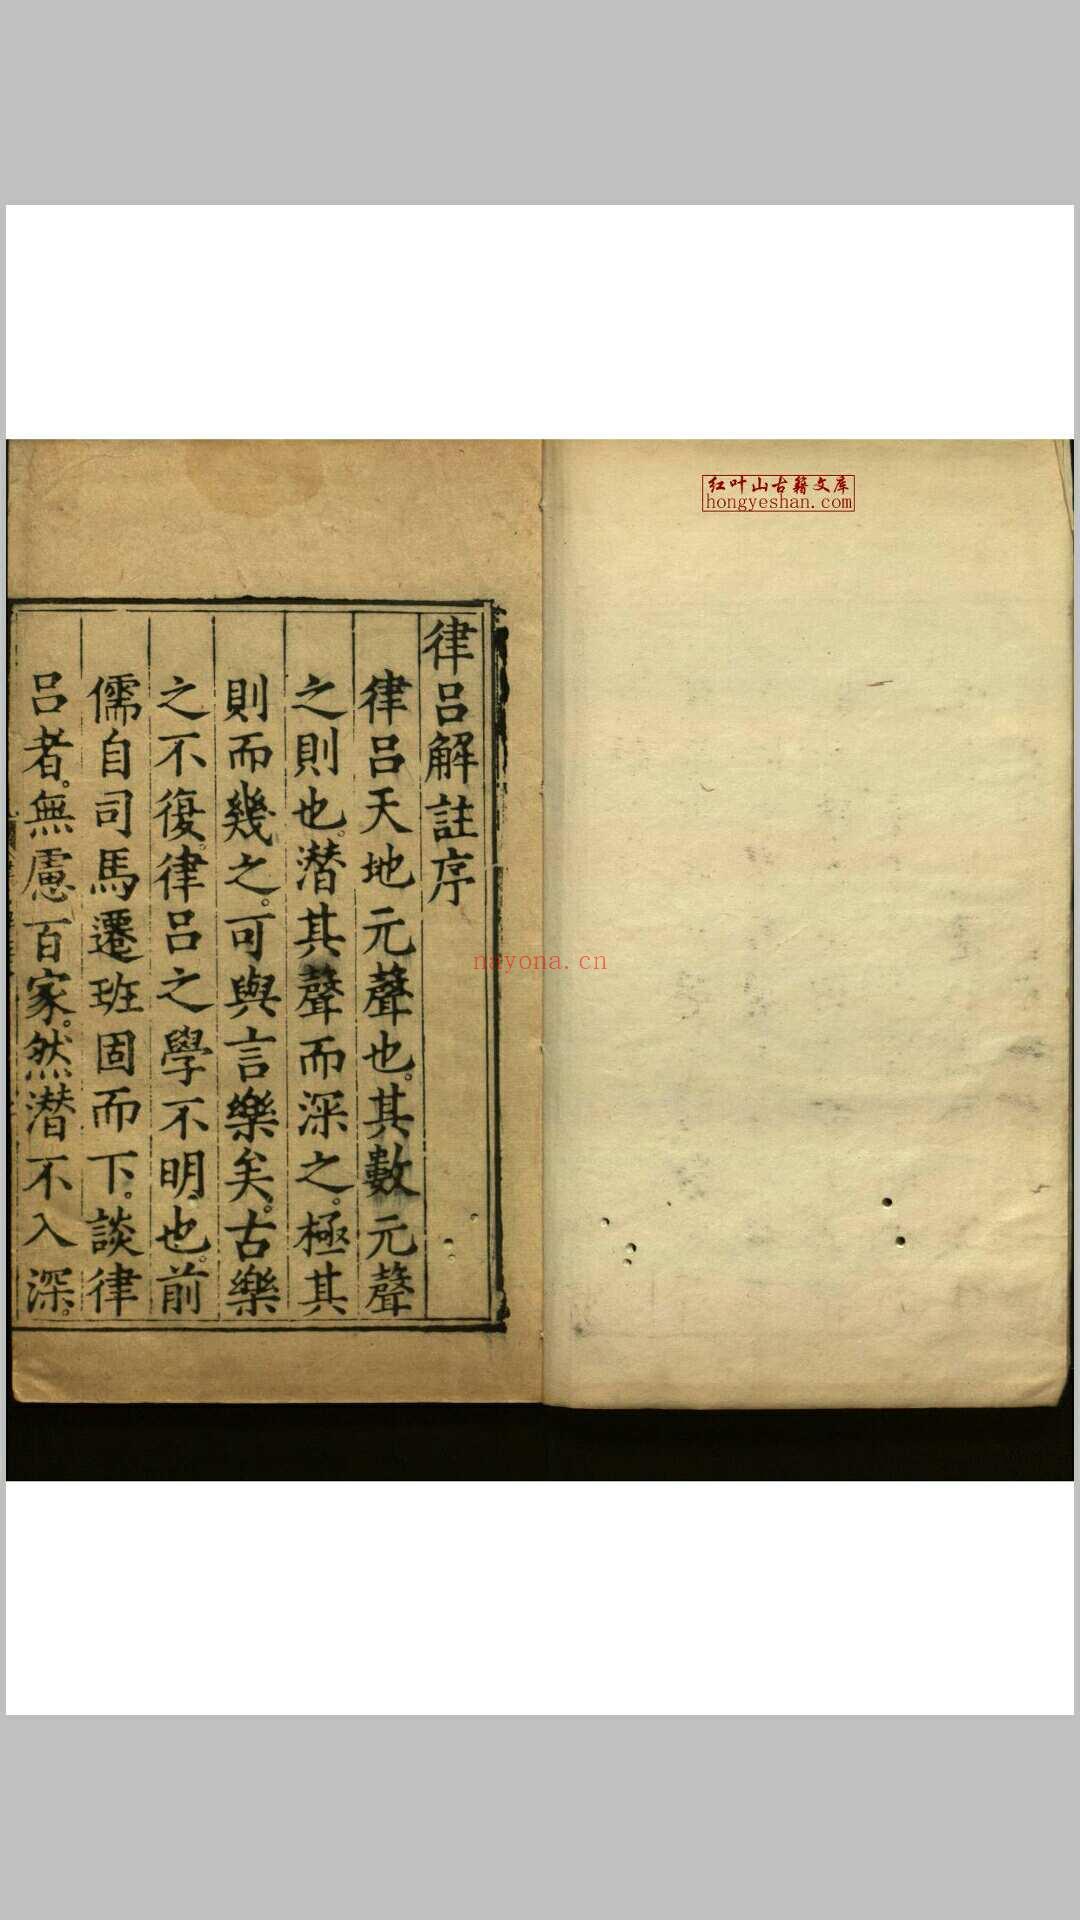 红叶山古籍文库
hongyeshan.com
律呂解註序
律呂天地元聲也。其數元聲
之則也。潜其聲而深之。極其
則而幾之。可與言樂矣。古樂
之不復。律呂之學不明也。前
儒自司馬遷班固而下。談律
呂者。無慮百家。然潜不入深。
nayona.cn